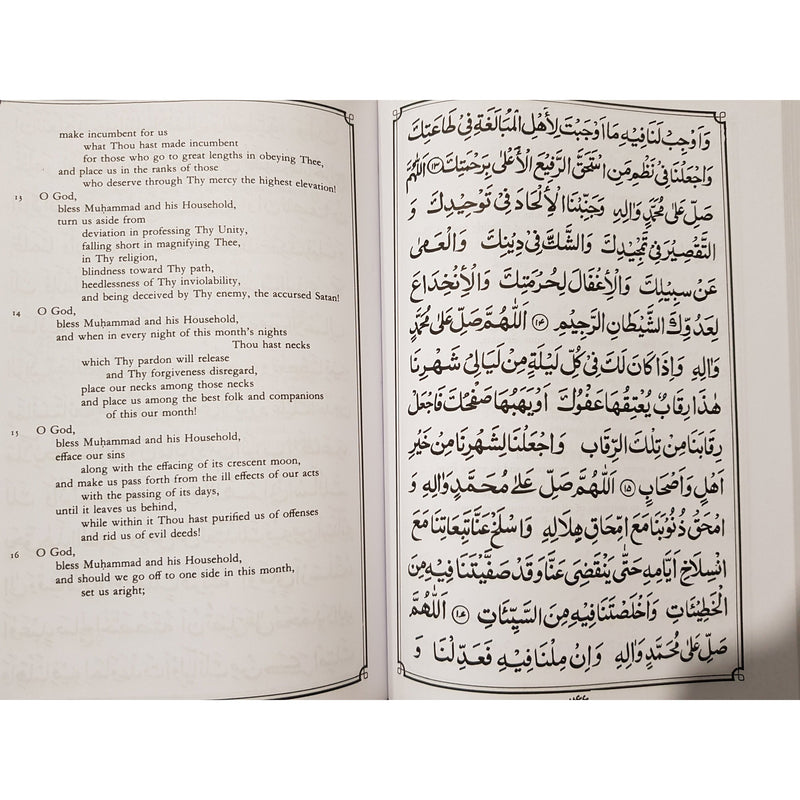 make incumbent for us
what Thou hast made incumbent
for those who go to great lengths in obeying Thee,
and place us in the ranks of those
who deserve through Thy mercy the highest elevation!
13 O God,
bless Muḥammad and his Household,
turn us aside from
deviation in professing Thy Unity,
falling short in magnifying Thee,
in Thy religion,
blindness toward Thy path,
heedlessness of Thy inviolability,
and being deceived by Thy enemy, the accursed Satan!
14 O God,
bless Muḥammad and his Household,
and when in every night of this month's nights
Thou hast necks
which Thy pardon will release
and Thy forgiveness disregard,
place our necks among those necks
and place us among the best folk and companions
of this our month!
15 O God,
bless Muḥammad and his Household,
efface our sins
along with the effacing of its crescent moon,
and make us pass forth from the ill effects of our acts
with the passing of its days,
until it leaves us behind,
while within it Thou hast purified us of offenses
and rid us of evil deeds!
16 O God,
bless Muḥammad and his Household,
and should we go off to one side in this month,
set us aright;
وَاَوْجِبْ لَنَا فِيْهِ مَا اَوْجَبْتَ لِاَهْلِ الْمُبَالَغَةِ فِيْ طَاعَتِكَ
وَاجْعَلْنَا فِيْ نَظْمِ مَنِ اسْتَحَقَّ الرَّفِيْعَ الْاَعْلٰى بِرَحْمَتِكَ ﴿۱۳﴾ اَللّٰهُمَّ
صَلِّ عَلٰى مُحَمَّدٍ وَاٰلِهٖ وَجَنِّبْنَا الْاِلْحَادَ فِيْ تَوْحِيْدِكَ وَ
التَّقْصِيْرَ فِيْ تَمْجِيْدِكَ وَالشَّكَّ فِيْ دِيْنِكَ وَالْعَمٰى
عَنْ سَبِيْلِكَ وَالْاِغْفَالَ لِحُرْمَتِكَ وَالْاِنْخِدَاعَ
لِعَدُوِّكَ الشَّيْطَانِ الرَّجِيْمِ ﴿۱۴﴾ اَللّٰهُمَّ صَلِّ عَلٰى مُحَمَّدٍ
وَاٰلِهٖ وَاِذَا كَانَ لَكَ فِيْ كُلِّ لَيْلَةٍ مِنْ لَيَالِيْ شَهْرِنَا
هٰذَا رِقَابٌ يُعْتِقُهَا عَفْوُكَ اَوْ يَهَبُهَا صَفْحُكَ فَاجْعَلْ
رِقَابَنَا مِنْ تِلْكَ الرِّقَابِ وَاجْعَلْنَا لِشَهْرِنَا مِنْ خَيْرِ
اَهْلٍ وَاَصْحَابٍ ﴿۱۵﴾ اَللّٰهُمَّ صَلِّ عَلٰى مُحَمَّدٍ وَاٰلِهٖ وَ
امْحَقْ ذُنُوْبَنَا مَعَ امِّحَاقِ هِلَالِهٖ وَاسْلَخْ عَنَّا تَبِعَاتِنَا مَعَ
انْسِلَاخِ اَيَّامِهٖ حَتّٰى يَنْقَضِيَ عَنَّا وَقَدْ صَفَّيْتَنَا فِيْهِ مِنَ
الْخَطِيْئَاتِ وَاَخْلَصْتَنَا فِيْهِ مِنَ السَّيِّئَاتِ ﴿۱۶﴾ اَللّٰهُمَّ
صَلِّ عَلٰى مُحَمَّدٍ وَاٰلِهٖ وَاِنْ مِلْنَا فِيْهِ فَعَدِّلْنَا وَ